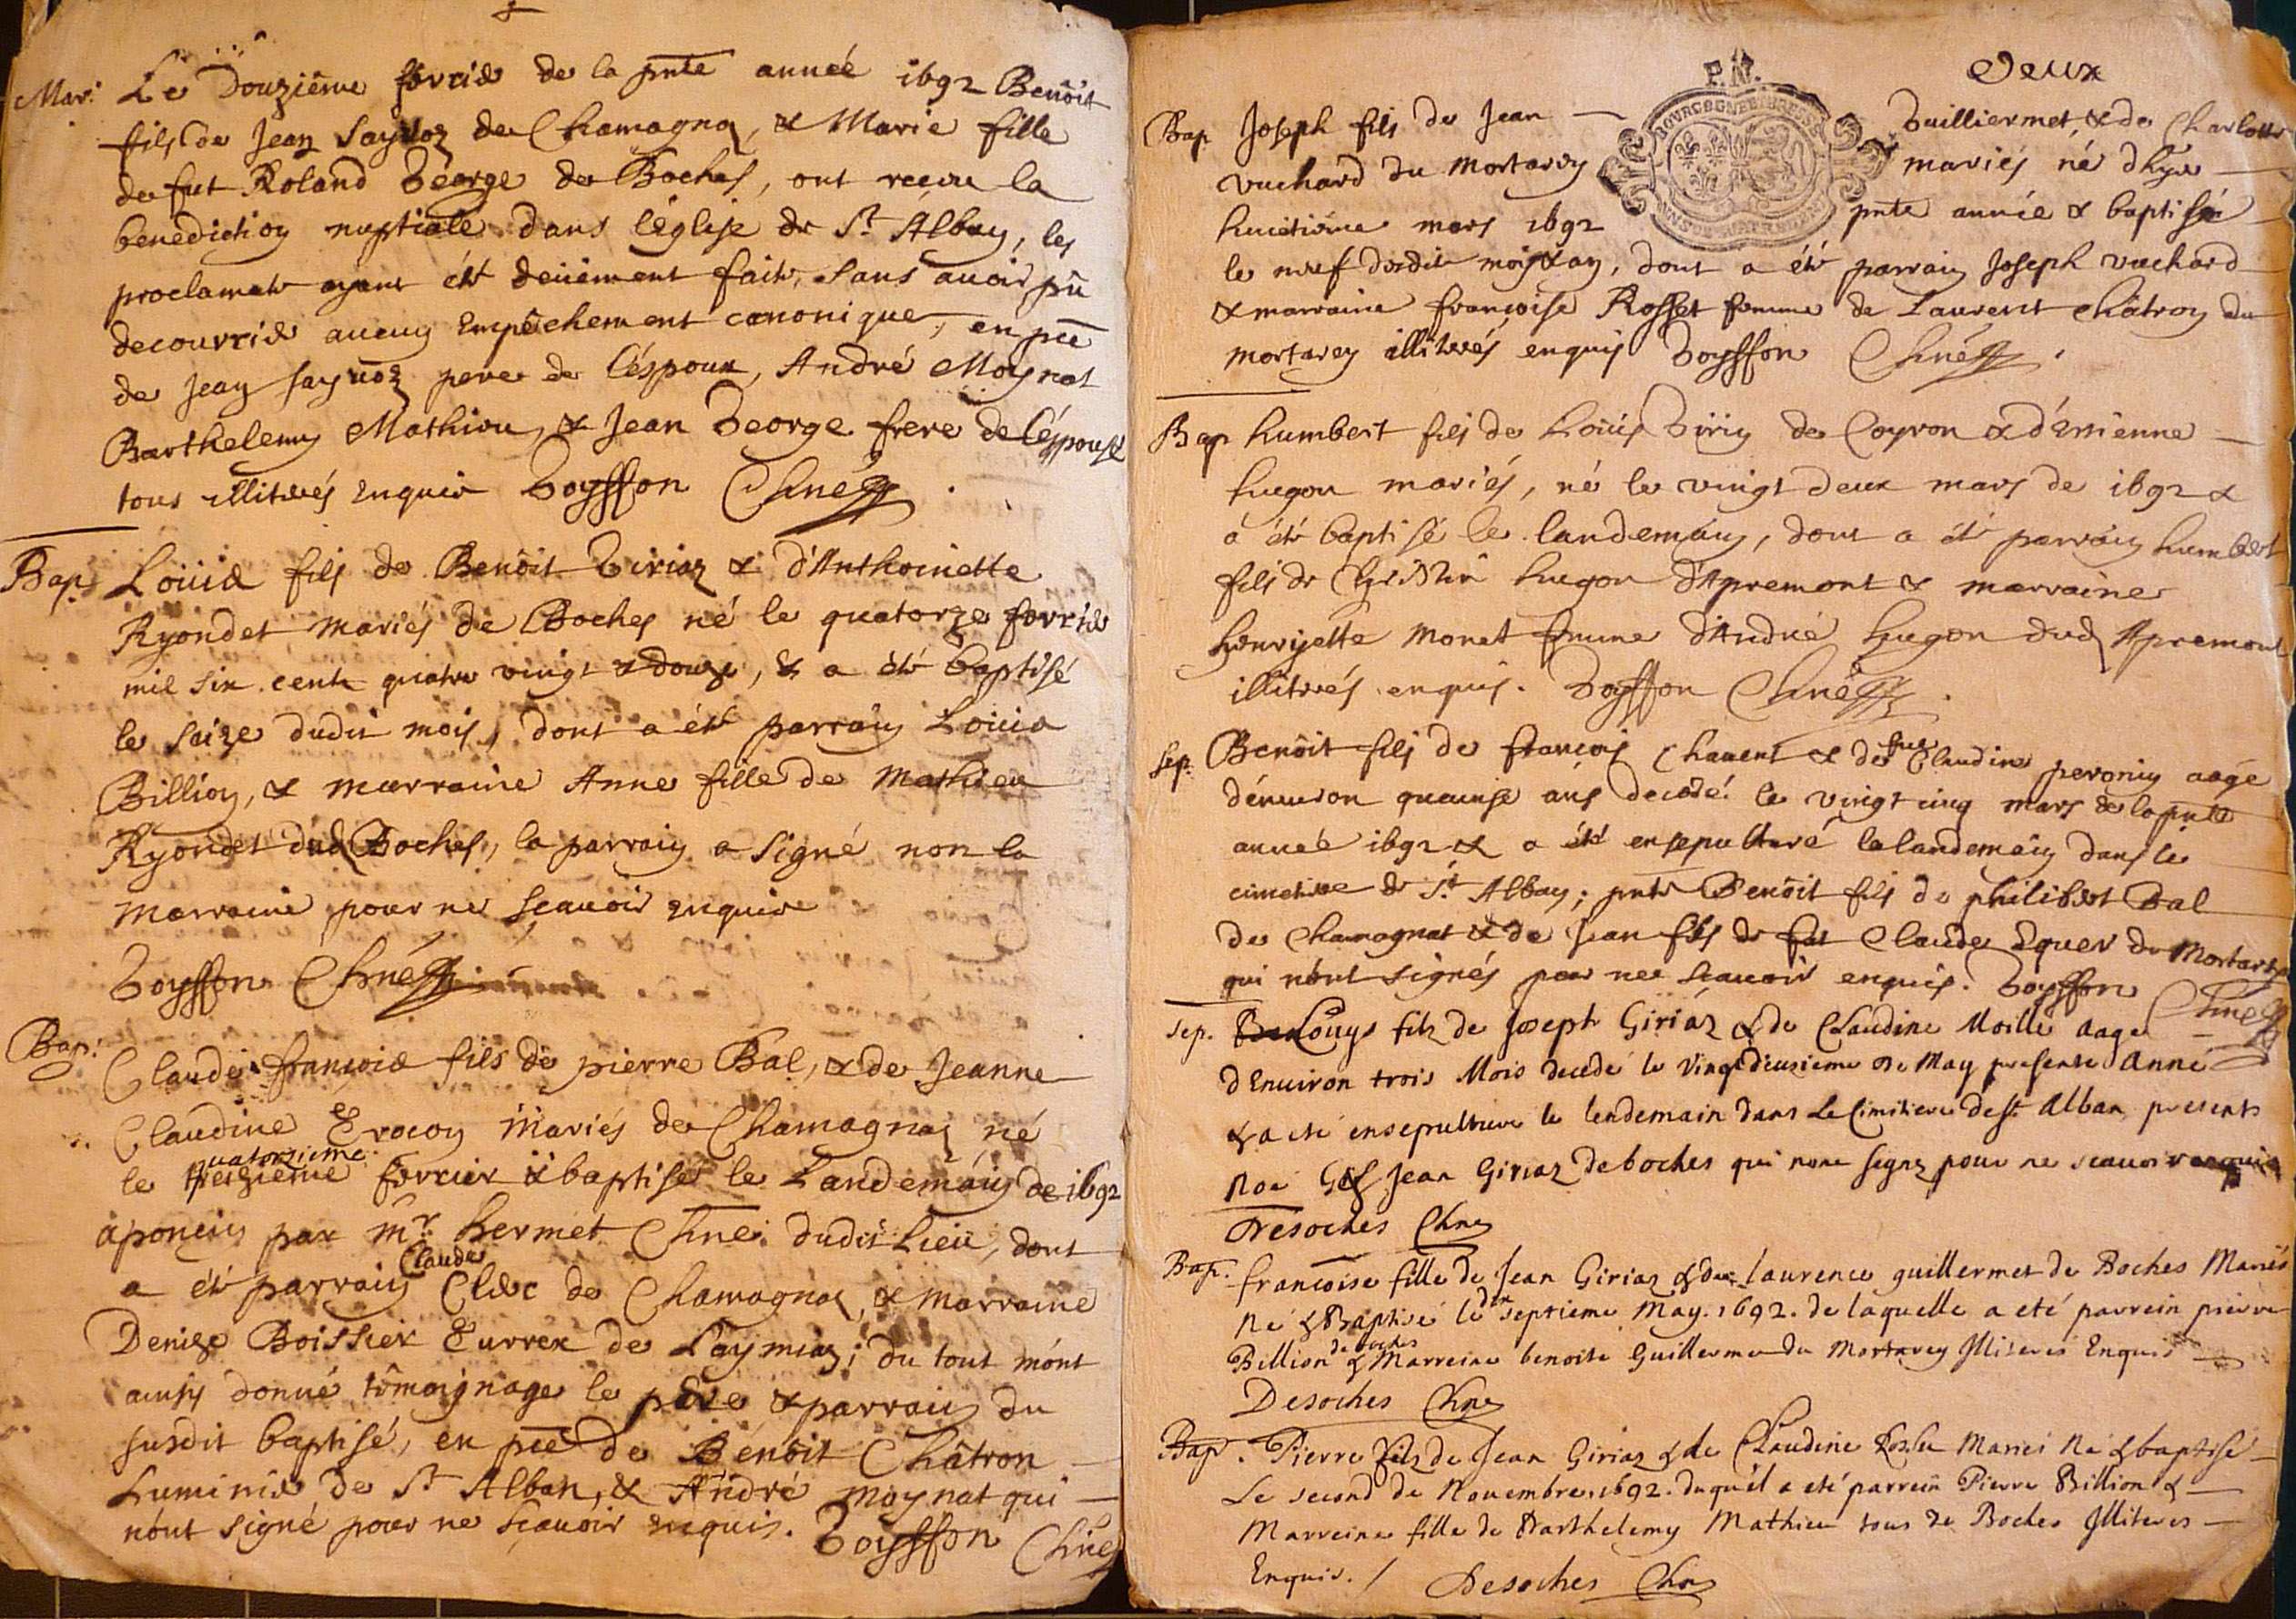 Mar. Le Douzième fevrier de la pnte année 1692 Benôit
fils de Jean Sayvoz de Chamagna, & Marie fille
de fut Roland George de Boches, ont receu la
benediction nuptiale dans l'église de St Alban, les
proclamats ayant été deüement faits, sans auoir pû
decouvrir aucun empêchement canonique, en pce
de Jean Sayvoz pere de l'éspoux, André Moynat
Barthelemy Mathieu, & Jean George frere de l'éspouse
tous illiterés enquis Goyffon Curé
Bap. Loüis fils de Benôit Giriaz & d'Anthoinette
Ryondet mariés de Boches né le quatorze fevrier
mil six cents quatre vingt & douze, & a été baptisé
le saize dudit mois, dont a été parrain Loüis
Billion, & marraine Anne fille de Mathieu
Ryondet dud Boches, le parrain a signé non la
marraine pour ne sçauoir enquise
Goyffon Curé
Bap. Claude françois fils de pierre Bal, & de Jeanne
Claudine Erocoy mariés de Chamagnaz né
quatorzieme
le treizieme fevrier & baptisé le Landemain de 1692
a poncin par mr. hermet Curé dudit Lieü, dont
Claude
a été parrain Clerc de Chamagna, & marraine
Denise Boissier Eurrex de Laymiaz; du tout m'ont
ainsy donné têmoignage le pere & parrain du
susdit baptisé, en pce de Benôit Châtron
Luminier de St Alban, & André moynat qui
n'ont signé pour ne sçauoir enquis. Goyffon Curé
Deux
P.N.
BOURGOGNE ET BRESSE
Bap. Joseph fils de Jean Guilliermet, & de Charlotte
vuchard du Mortarey mariés né d'hyer
huictiéme mars 1692 pnte année & baptisé
le neuf dudit mois & an, dont a été parrain Joseph vuchard
& marraine françoise Rosset femme de Laurent Châtron du
mortarey illiterés enquis Goyffon Curé
Bap humbert fils de Loüis Giriy de Coyron & d'Estienne
hugon mariés, né le vingt deux mars de 1692 &
a été baptisé le landemain, dont a été parrain humbert
fils de hugon d'Apremont & marraine
henryette Monet femme d'André hugon dud Apremont
illiterés enquis. Goyffon Curé
Sep. Benôit fils de françois Chanent & de fue Claudine peronin aagé
d'énuiron quainse ans decedé le vingt cinq mars de la pnte
année 1692 & a été ensepulturé le landemain dans le
cimetiere de St Alban; pnts Benôit fils de philibert Bal
de Chamagnat & de Jean fils de fut Claude du Mortarey
qui n'ont signés pour ne sçauoir enquis. Goyffon Curé
Sep. Louys filz de Joseph Giriaz & de Claudine Moille aagé
d'Enuiron trois Mois decedé le Vingtdeuzieme de May presente Anné
& a eté ensepulture le lendemain dans Le Cimitiere de St Alban presents
Jean Giriaz de boches qui nont signez pour ne scauoir enquis
Desoches Cure
Bap. francoise fille de Jean Giriaz & de laurence guillermet de Boches Mariés
Né & Baptisé le dix septieme May. 1692. de laquelle a eté parrein pierre
de boches
Billion & Marreine benoite Guillermet du Mortarey Illiteres Enquis
Desoches Cure
Bap. Pierre filz de Jean Giriaz & de Claudine Mariei Né & baptisé
Le second de Nouembre 1692. duquél a eté parrein Pierre Billion &
Marreine fille de Barthelemy Mathieu tous de Boches Illiteres
Enquis. / Desoches Cure